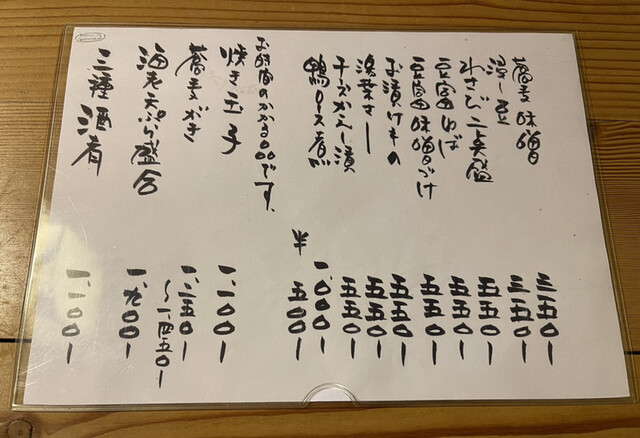 蕎麦味噌 三五〇ー
浸し豆 三五〇ー
わさび二点盛 五五〇ー
豆富ゆば 五五〇ー
豆富味噌づけ 五五〇ー
お漬けもの 五五〇ー
湯葉さし 五五〇ー
チーズかえし漬 五五〇ー
鴨ロース煮 一、〇〇〇ー
半 五〇〇ー
お時間のかかる品です。
焼き玉子 一、一〇〇ー
蕎麦がき 一、二五〇ー
〜一、四五〇ー
海老天ぷら盛合 一、九〇〇ー
三種酒肴 一、一〇〇ー